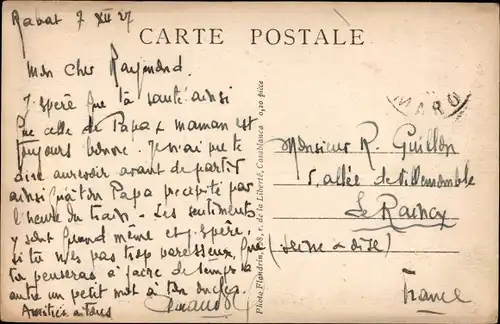 Rabat 7 XII 27
CARTE POSTALE
Mon cher Raymond.
J'espère que ta santé ainsi
que celle de Papa & maman est
toujours bonne. Je n'ai pu te
dire au revoir avant de partir
ainsi qu'à ton Papa précipité par
l'heure du train. Les sentiments
y sont quand même et j'espère,
si tu n'es pas trop paresseux, que
tu penseras à faire de temps à
autre un petit mot à ton
Amitiés
Photo Flandrin, 208, r. de la Liberté, Casablanca 0,20 pièce
MARO
Monsieur R. Guillon
5, allée de Villemomble
Le Raincy
(Seine & Oise)
France